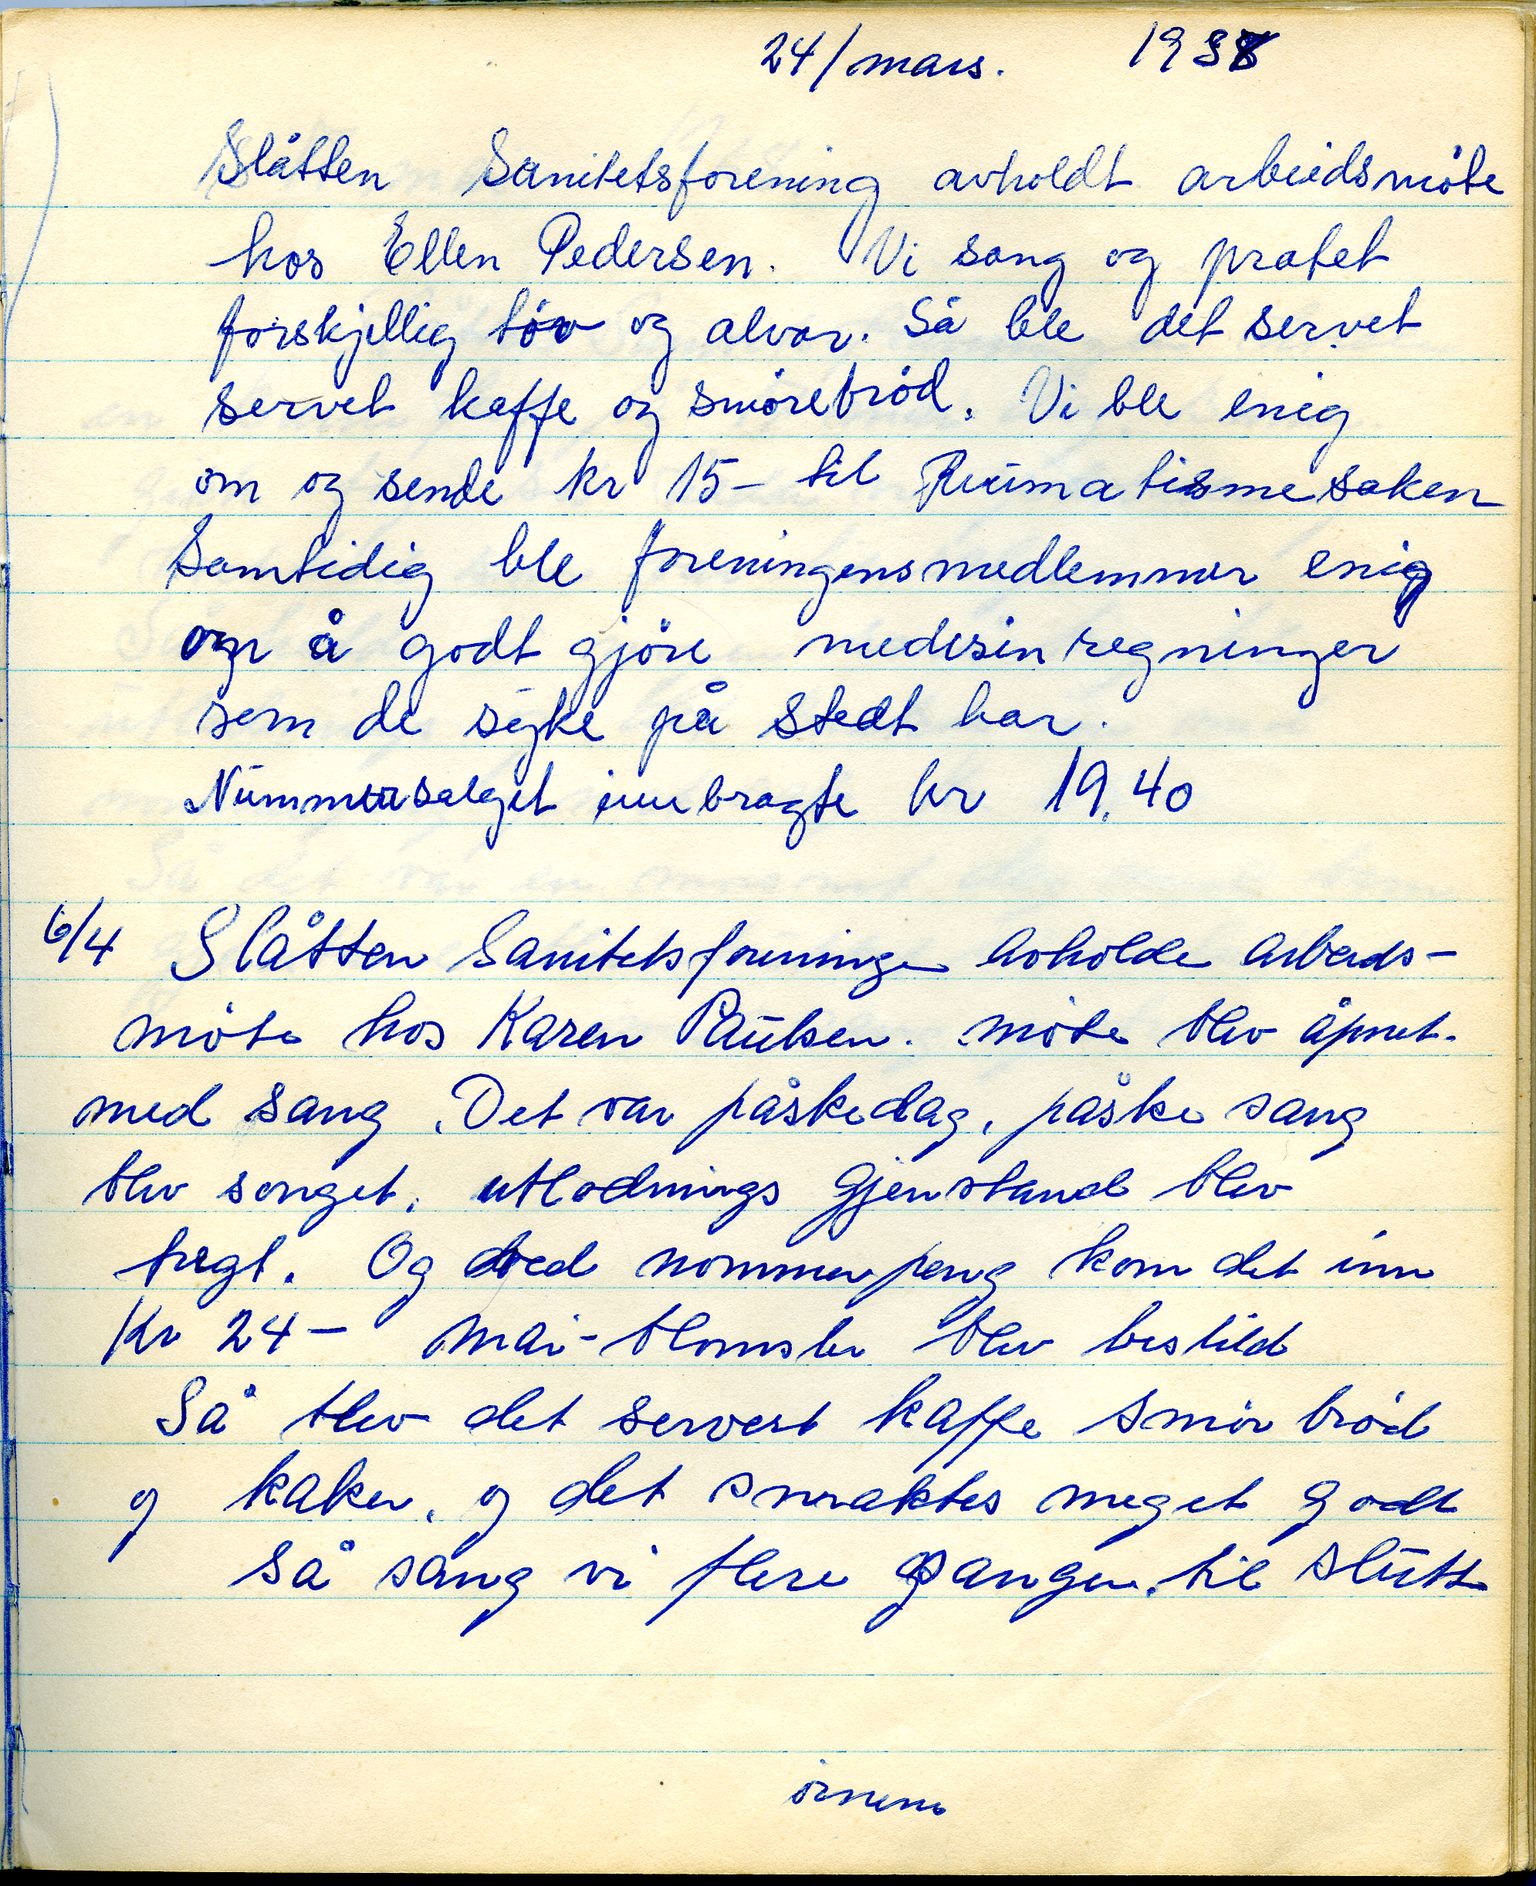 24/mars. 1958
Slåtten Sanitetsforening avholdt arbeidsmöte
hos Ellen Pedersen. Vi sang og pratet
forskjellig töv og alvor. Så ble det servet
servet kaffe og smörebröd. Vi ble enig
om og sende kr 15- til Reumatismesaken
Samtidig ble foreningensmedlemmer enig
om å godt gjöre medisin regninger
som de syke på stedt har.
Nummersalget innbragte kr 19.40
6/4 Slåtten Sanitetsforeninge avholde arbeids-
möte hos Karen Paulsen. möte blev åpnet.
med sang. Det var påskedag, påske sang
blev songet. utlodnings gjenstand blev
tregt. Og med nommerpeng kom det inn
Kr 24- mai-blomster blev bestild
Så blev det servert kaffe smör bröd
og kaker, og det smaktes meget godt
så sang vi flere ganger. til slutt